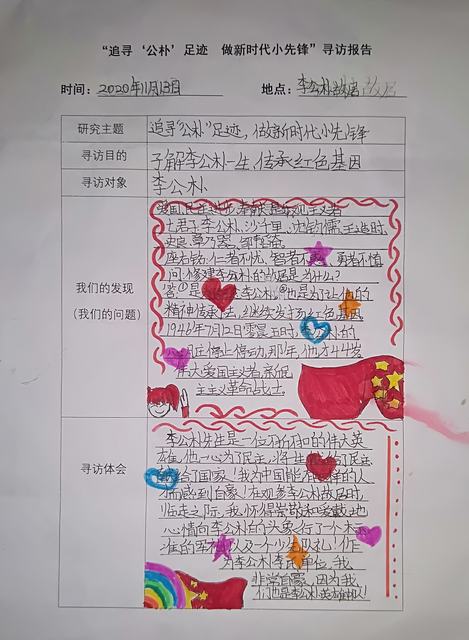 “追寻‘公朴’足迹 做新时代小先锋”寻访报告
时间：2020年11月13日 地点：李公朴故居
研究主题 追寻“公朴”足迹，做新时代小先锋
寻访目的 了解李公朴一生，传承红色基因
寻访对象 李公朴
我们的发现
（我们的问题）
爱国民主
七君子：李公朴、沙千里、沈钧儒、王造时、
史良、章乃器、邹韬奋。
座右铭：仁者不忧，智者不 勇者不惧
问：修建李公朴的故居是为什么？
答：是 李公朴，也是为了让他的
精神传承下去，继续发扬红色基因
1946年7月12日零晨五时，李公朴的
心脏停止停动，那年，他才44岁
伟大爱国主义者，
主主义革命战士。
寻访体会
李公朴先生是一位 的伟大英
雄，他一心为了民主，将生 给了民主，
给了国家！我为中国能有这样的人
而感到自豪！在观看李公朴故居时，
临走之际，我怀得崇敬和爱戴地
心情向李公朴的头象行了一个标
准的军 以及一个少先队礼！作
为李公朴 单位，我
非常自豪，因为我
们也是李公朴英雄中队！